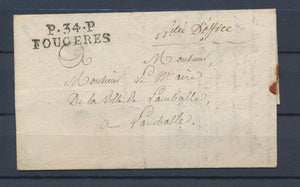 P.34.P
FOUGERES
A Monsieur
Monsieur Le Maire
De la Ville de Lamballe
a Lamballe.